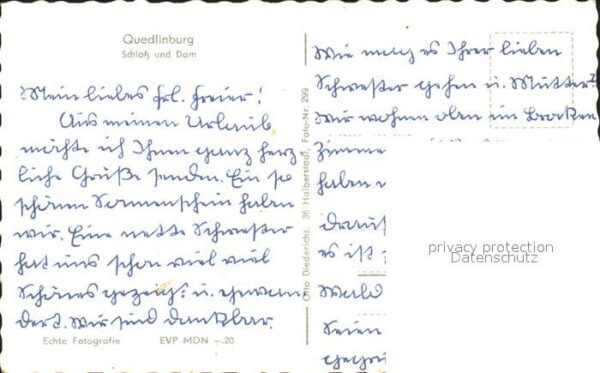 Quedlinburg
Schloß und Dom
Mein liebes Frl. Freier!
Aus meinen Urlaub
möchte ich Ihnen ganz herz
liche Grüße senden. Ein so
schönen Sonnenschein haben
wir. Eine nette Schwester
hat uns schon viel viel
Schönes gezeigt u. gewan
dert. Wir sind dankbar.
Echte Fotografie EVP MDN –.20
Otto Diederichs, 36 Halberstadt, Foto-Nr. 299
Wie mag es Ihrer lieben
Schwester gehen u. Mutter?
Wir wohnen oben ein Brocken
Zimme
haben
es ist
Wald
privacy protection
Datenschutz